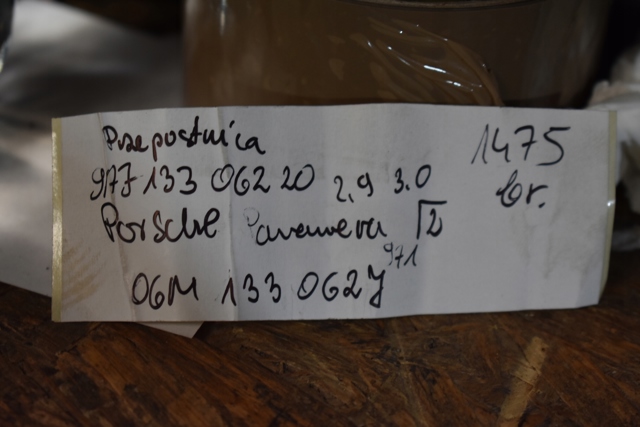 Przepostnica
9A7 133 062 20 2,9 3.0
Porsche Panamera
971
06M 133 062J
1475
br.